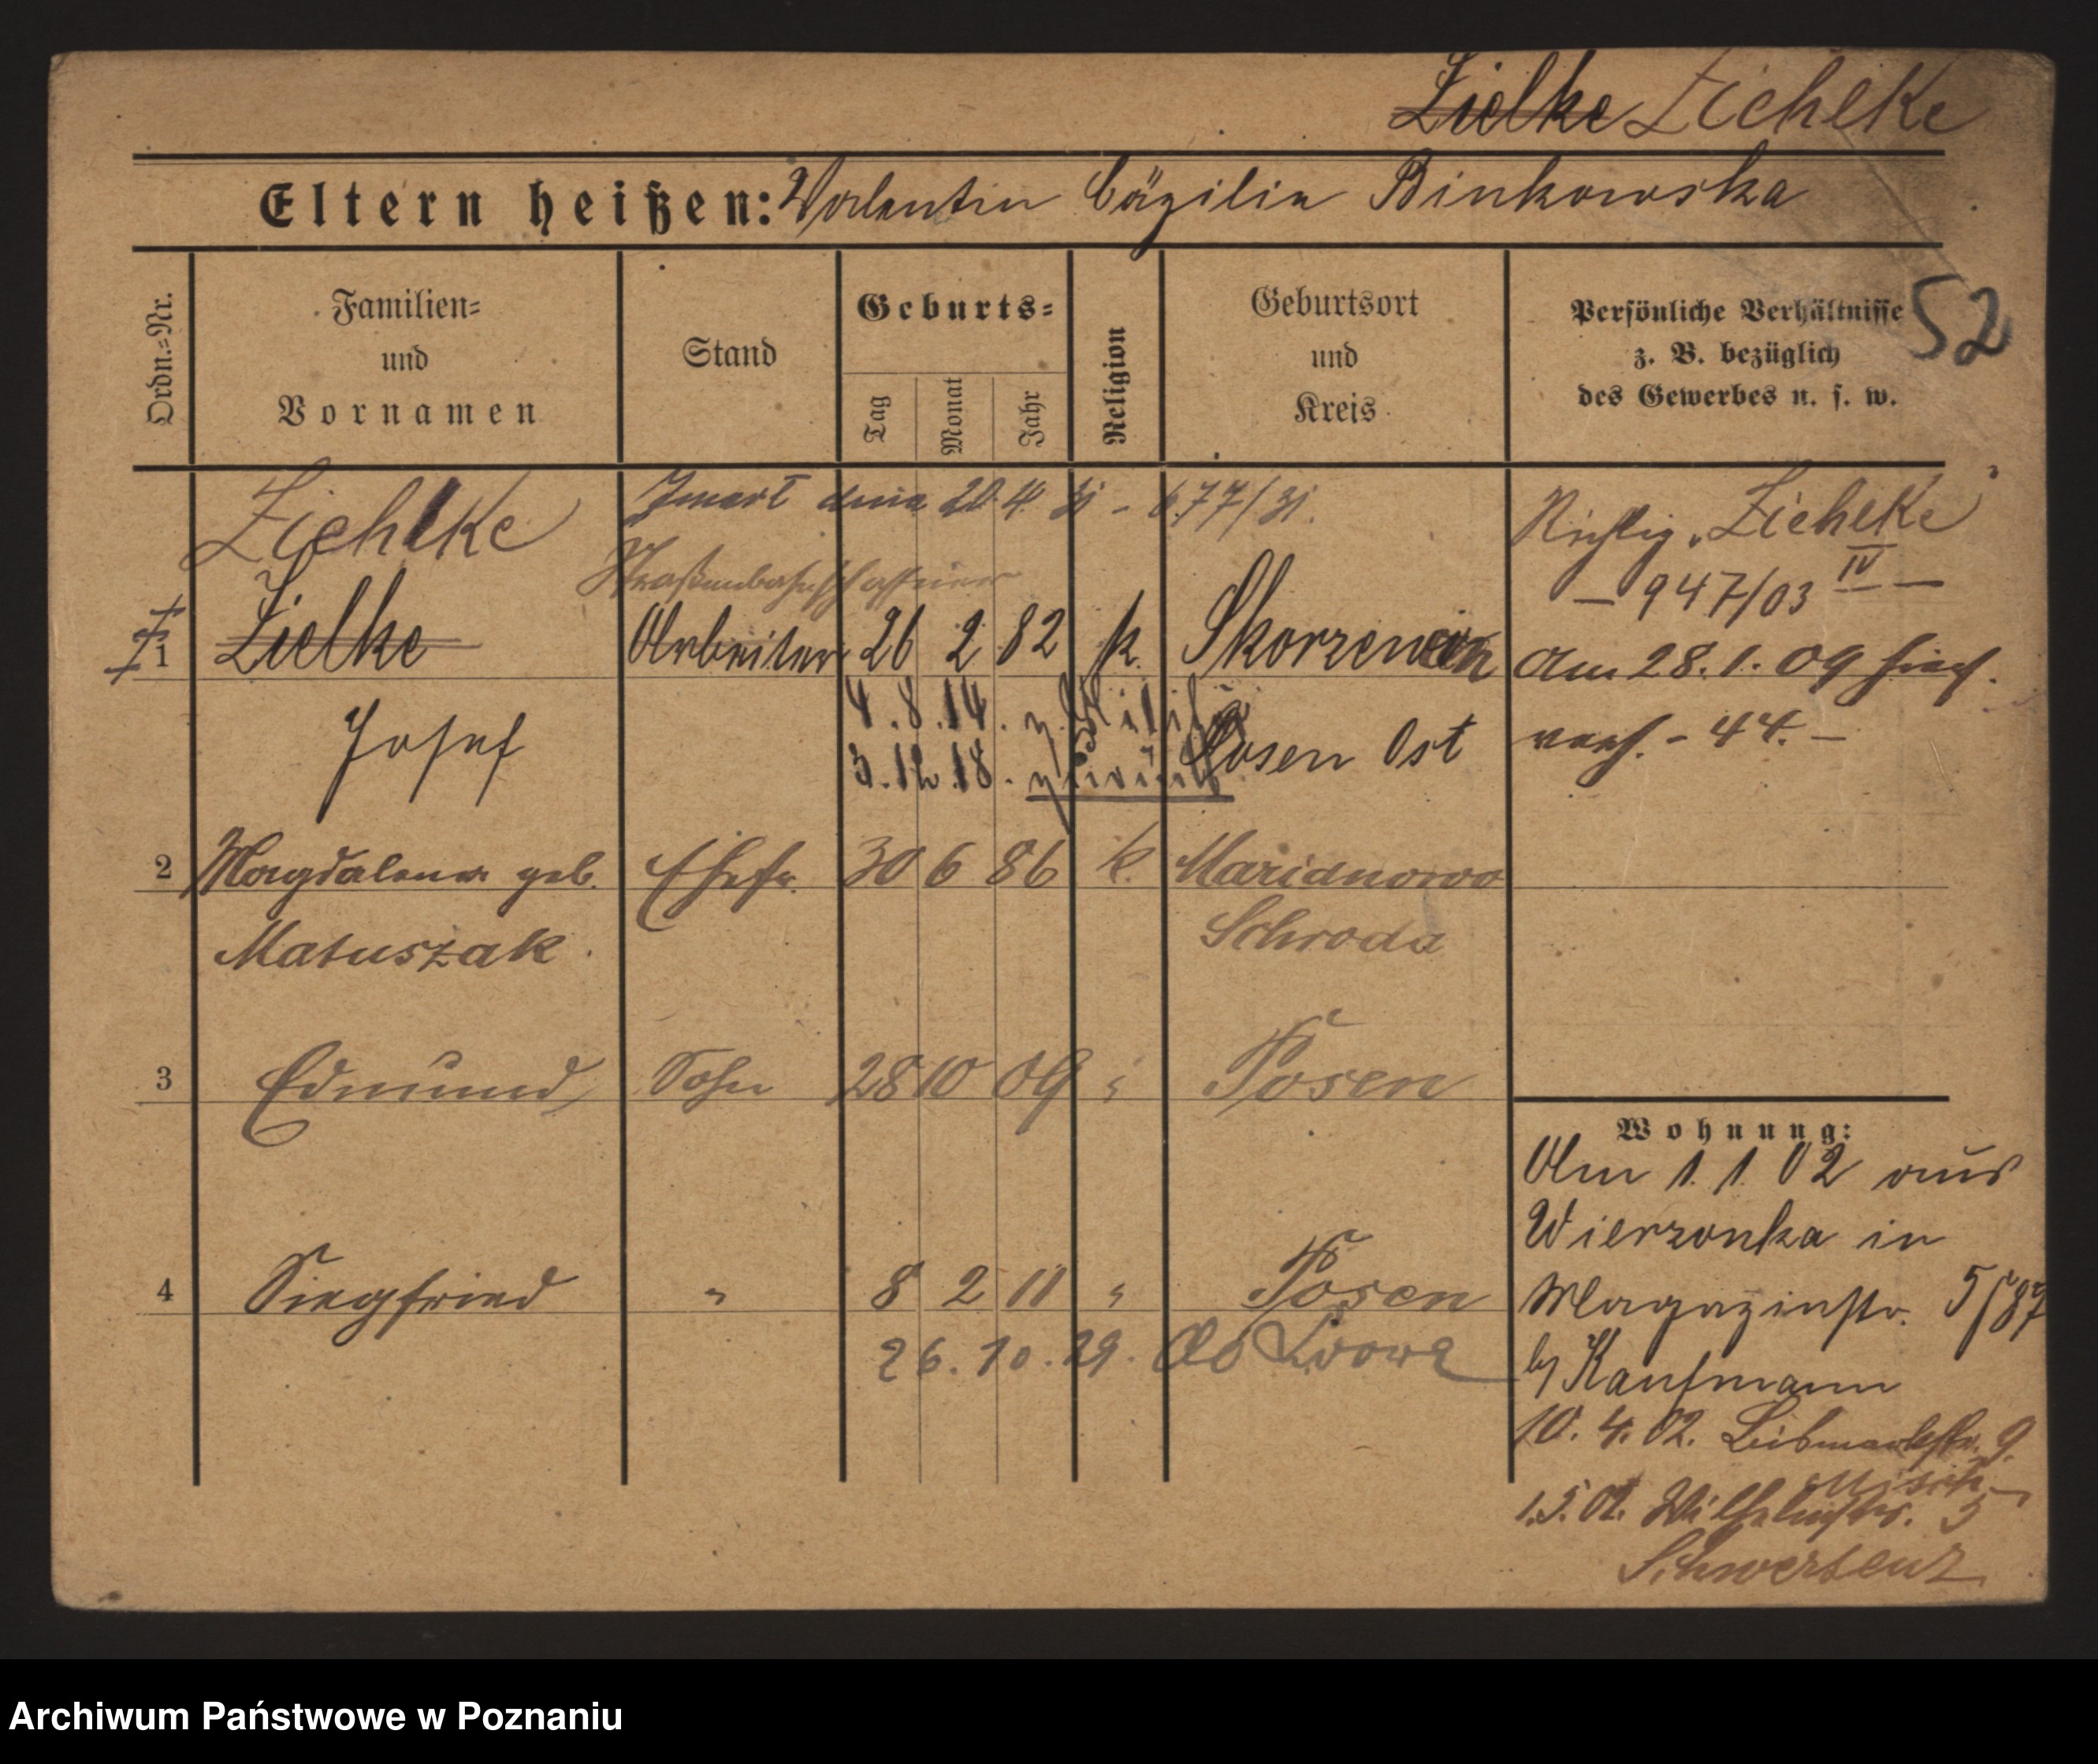 Zielke Ziehlke
Eltern heißen: Valentin Cäzilia Binkowska
Ordn.=Nr.
Familien=
und
Vornamen
Stand
Geburts=
Tag
Monat
Jahr
Religion
Geburtsort
und
Kreis
Persönliche Verhältnisse
z. B. bezüglich
des Gewerbes u. s. w.
52
Ziehlke
Zmarł dnia 20 4 31 - 677/31.
Richtig "Ziehlke"
Straßenbahnschaffner
- 947/03 IV -
1 Zielke Arbeiter 26 2 82 k.
Am 28. 1. 09
Josef
4. 8. 14. z. Militär
Posen Ost
- 44. -
3. 12. 18. zurück
2 Magdalena geb. Ehefr. 30 6 86 k. Marianowo
Matuszak.
Schroda
3 Edmund Sohn 28 10 09 " Posen
Wohnung:
Am 1. 1. 02 aus
Wierzonka in
4 Siegfried " 8 2 11 " Posen
Magazinstr. 5/87
26. 10. 29. do Lwowa
b/ Kaufmann
10. 4. 02. 9.
1. 5. 02. Wilhelmstr. 5
Schwersenz
Archiwum Państwowe w Poznaniu